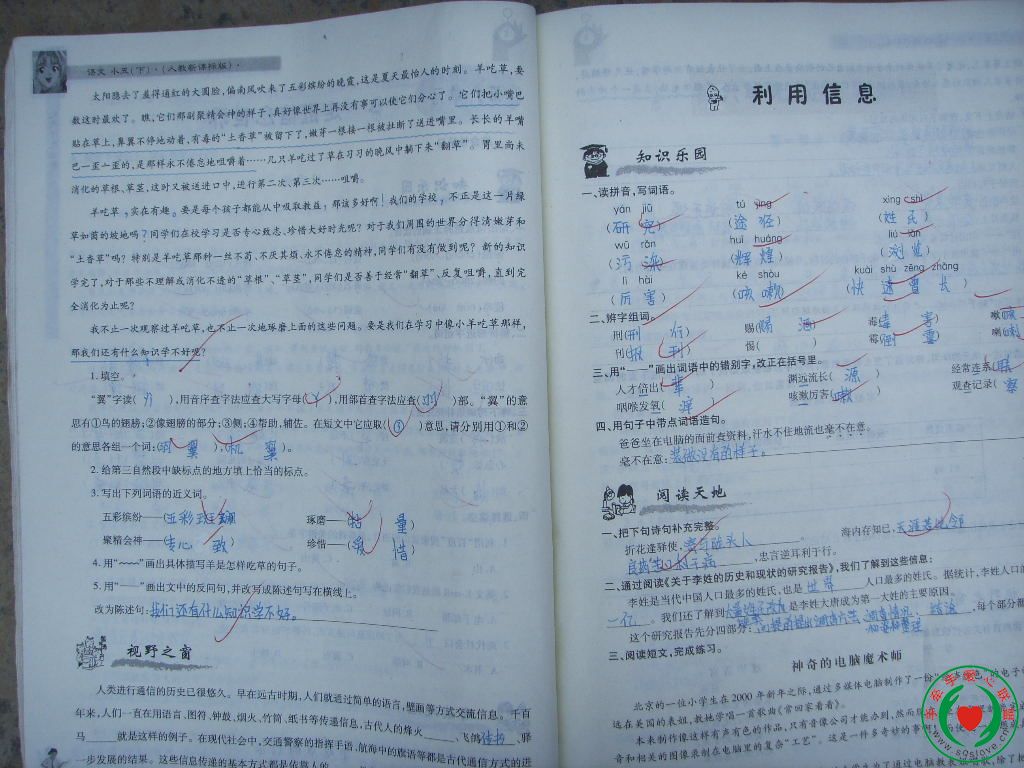 语文 小五(下)·(人教新课标版)·
太阳隐去了羞得通红的大圆脸,偏南风吹来了五彩缤纷的晚霞,这是夏天最怡人的时刻。羊吃草,要
数这时最欢了。瞧,它们那副聚精会神的样子,真好像世界上再没有事可以使它们分心了。它们把小嘴巴
贴在草上,鼻翼不停地动着,有毒的“土香草”被留下了,嫩芽一根接一根被扯断了送进嘴里。长长的羊嘴
巴一歪一歪的,是那样永不倦怠地咀嚼着……几只羊吃过了草在习习的晚风中躺下来“翻草”。胃里尚未
消化的草根、草茎,这时又被送进口中,进行第二次、第三次……咀嚼。
羊吃草,实在有趣。要是每个孩子都能从中吸取教益,那该多好啊!我们的学校,不正是这一片绿
草如茵的坡地吗?同学们在校学习是否专心致志、珍惜大好时光呢?对于我们周围的世界分得清嫩芽和
“土香草”吗?特别是羊吃草那种一丝不苟、不厌其烦、永不倦怠的精神,同学们有没有做到呢?新的知识
学完了,对于那些不理解或消化不透的“草根”、“草茎”,同学们是否善于经常“翻草”、反复咀嚼,直到完
全消化为止呢?
我不止一次观察过羊吃草,也不止一次地琢磨上面的这些问题。要是我们在学习中像小羊吃草那样,
那我们还有什么知识学不好呢?
1.填空。
“翼”字读(yì),用音序查字法应查大写字母(Y),用部首查字法应查(羽)部。“翼”的意
思有①鸟的翅膀;②像翅膀的部分;③侧;④帮助,辅佐。在短文中它应取(③)意思,请分别用①和②
的意思各组一个词:(羽翼)、(机翼)。
2.给第三自然段中缺标点的地方填上恰当的标点。
3.写出下列词语的近义词。
五彩缤纷——(五彩斑斓) 琢磨——( 量)
聚精会神——(专心 致) 珍惜——(爱惜)
4.用“~~~”画出具体描写羊是怎样吃草的句子。
5.用“——”画出文中的反问句,并改写成陈述句写在横线上。
改为陈述句:我们还有什么知识学不好。
视野之窗
人类进行通信的历史已很悠久。早在远古时期,人们就通过简单的语言,壁画等方式交流信息。千百
年来,人们一直在用语言、图符、钟鼓、烟火、竹简、纸书等传递信息,古代人的烽火____、飞鸽传书、驿
马____就是这样的例子。在现代社会中,交通警察的指挥手语、航海中的旗语等都是古代通信方式的进
一步发展的结果。这些信息传递的基本方式都是依靠人的
利用信息
知识乐园
一、读拼音,写词语。
yán jiū tú jìng xìng shì
(研究) (途径) (姓氏)
wū rǎn huī huáng liú lǎn
(污染) (辉煌) (浏览)
lì hài ké shòu kuài shù zēng zhǎng
(厉害) (咳嗽) (快速曾长)
二、辨字组词。
刑(刑行) 赐(赐酒) 毒(毒害) 嗽(咳
刊(报刊) 惕( ) 霉(倒霉) 喇(喇
三、用“——”画出词语中的错别字,改正在括号里。
人才倍出(辈) 渊远流长(源) 经常连系(联
咽喉发氧(痒) 咳漱厉害(嗽) 现查记录(察
四、用句子中带点词语造句。
爸爸坐在电脑的面前查资料,汗水不住地流也毫不在意。
毫不在意:装做没有的样子。
阅读天地
一、把下句诗句补充完整。
折花逢驿使,寄与陇头人。 海内存知己,天涯若比邻
良药苦口利于病,忠言逆耳利于行。
二、通过阅读《关于李姓的历史和现状的研究报告》,我们了解到这些信息:
李姓是当代中国人口最多的姓氏,也是世界人口最多的姓氏。据统计,李姓人口的
一亿。我们还了解到 是李姓大唐成为第一大姓的主要原因。
这个研究报告先分四部分: 每个部分都
三、阅读短文,完成练习。
神奇的电脑魔术师
北京的一位小学生在2000年新年之际,通过多媒体电脑制作了一份“有声 色”的电子
远在美国的表姐,教她学唱一首歌曲《常回家看看》。
本来制作像这样有声有色的作品,只有音像公司才能办到,然而
音和相关的图像录制在电脑里的复杂“工艺”。这是一件多奇妙的事
www.sqslove.cn